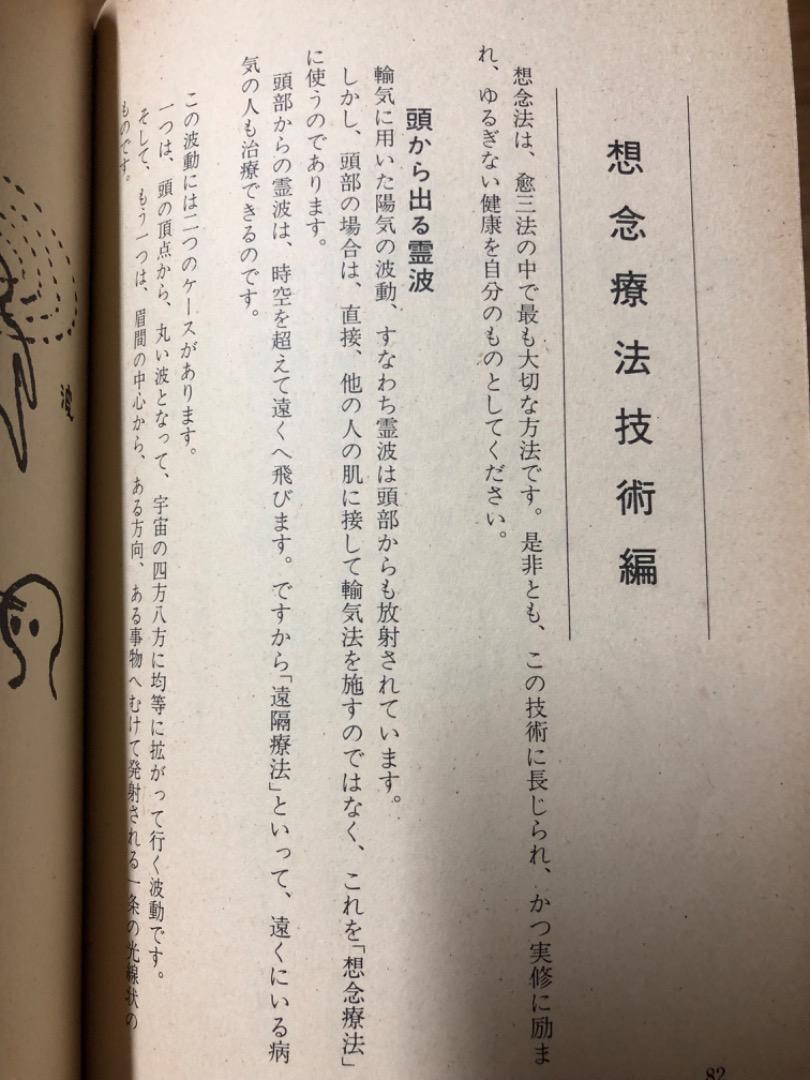 想念療法技術編
想念法は、愈三法の中で最も大切な方法です。是非とも、この技術に長じられ、かつ実修に励ま
れ、ゆるぎない健康を自分のものとしてください。
頭から出る霊波
輸気に用いた陽気の波動、すなわち霊波は頭部からも放射されています。
しかし、頭部の場合は、直接、他の人の肌に接して輸気法を施すのではなく、これを「想念療法」
に使うのであります。
頭部からの霊波は、時空を超えて遠くへ飛びます。ですから「遠隔療法」といって、遠くにいる病
気の人も治療できるのです。
この波動には二つのケースがあります。
一つは、頭の頂点から、丸い波となって、宇宙の四方八方に均等に拡がって行く波動です。
そして、もう一つは、眉間の中心から、ある方向、ある事物へむけて発射される一条の光線状の
ものです。
波
82